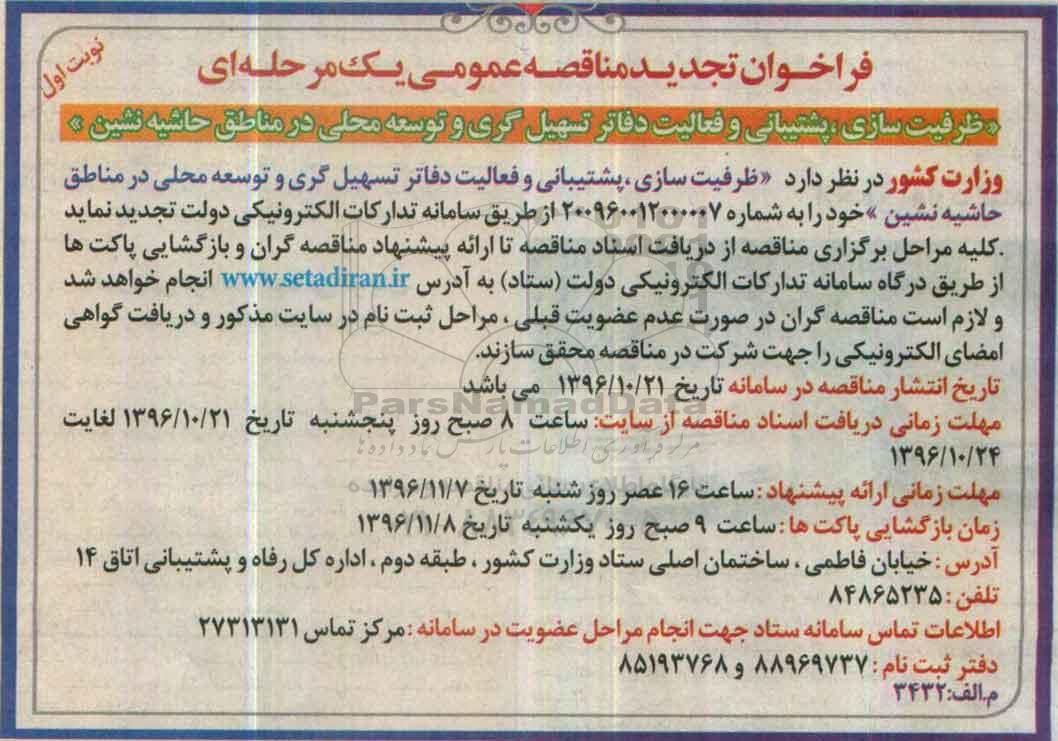 نوبت اول
فراخوان تجدید مناقصه عمومی یک مرحله‌ای
«ظرفیت سازی ،پشتیبانی و فعالیت دفاتر تسهیل گری و توسعه محلی در مناطق حاشیه نشین »
وزارت کشور در نظر دارد «ظرفیت سازی ،پشتیبانی و فعالیت دفاتر تسهیل گری و توسعه محلی در مناطق
حاشیه نشین »خود را به شماره ۲۰۰۹۶۰۰۱۲۰۰۰۰۰۷ از طریق سامانه تدارکات الکترونیکی دولت تجدید نماید
.کلیه مراحل برگزاری مناقصه از دریافت اسناد مناقصه تا ارائه پیشنهاد مناقصه گران و بازگشایی پاکت ها
از طریق درگاه سامانه تدارکات الکترونیکی دولت (ستاد) به آدرس www.setadiran.ir انجام خواهد شد
و لازم است مناقصه گران در صورت عدم عضویت قبلی ، مراحل ثبت نام در سایت مذکور و دریافت گواهی
امضای الکترونیکی را جهت شرکت در مناقصه محقق سازند.
تاریخ انتشار مناقصه در سامانه تاریخ ۱۳۹۶/۱۰/۲۱ می باشد
ParsNamadData
مهلت زمانی دریافت اسناد مناقصه از سایت: ساعت ۸ صبح روز پنجشنبه تاریخ ۱۳۹۶/۱۰/۲۱ لغایت
۱۳۹۶/۱۰/۲۴
مهلت زمانی ارائه پیشنهاد :ساعت ۱۶ عصر روز شنبه تاریخ ۱۳۹۶/۱۱/۷
زمان بازگشایی پاکت ها : ساعت ۹ صبح روز یکشنبه تاریخ ۱۳۹۶/۱۱/۸
آدرس : خیابان فاطمی ، ساختمان اصلی ستاد وزارت کشور ، طبقه دوم ، اداره کل رفاه و پشتیبانی اتاق ۱۴
تلفن : ۸۴۸۶۵۲۳۵
اطلاعات تماس سامانه ستاد جهت انجام مراحل عضویت در سامانه :مرکز تماس ۲۷۳۱۳۱۳۱
دفتر ثبت نام : ۸۸۹۶۹۷۳۷ و ۸۵۱۹۳۷۶۸
م.الف:۳۴۳۲